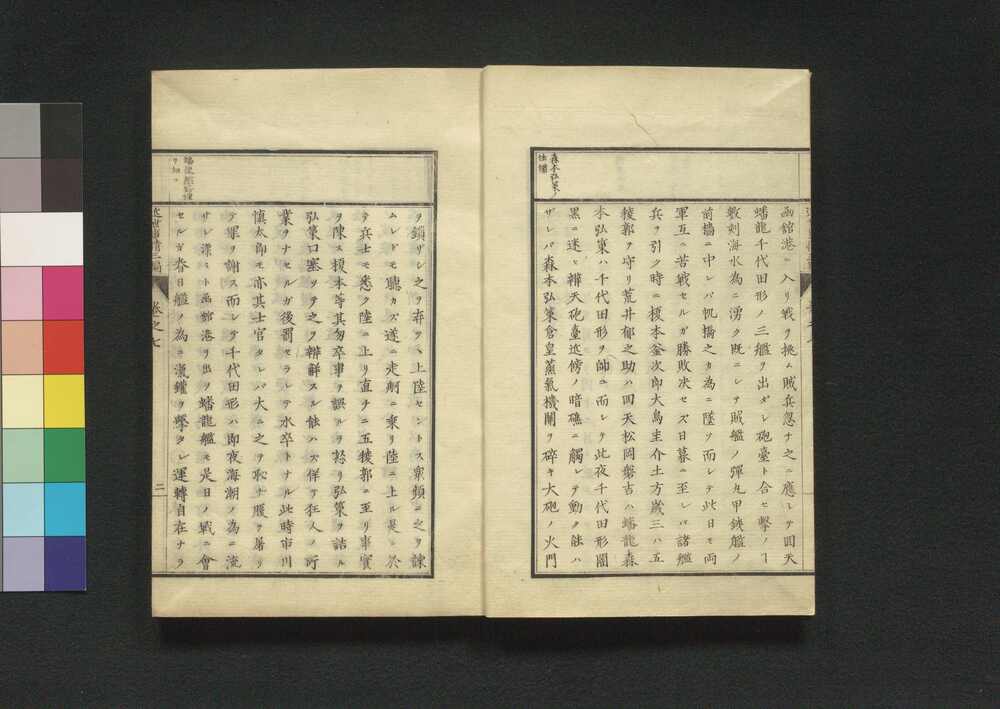 森本弘策ノ
怯懦
函館港ニ入リ戦ヲ挑ム賊兵忽チ之ニ應シテ回天
蟠龍千代田形ノ三艦ヲ出ダシ砲臺ト合セ擊ノヿ
數刻海水為ニ湧ク既ニシテ賊艦ノ彈丸甲鐵艦ノ
前檣ニ中レバ帆橋之カ為ニ墜ツ而シテ此日モ両
軍互ニ苦戦セルガ勝敗决セズ日暮ニ至レバ諸艦
兵ヲ引ク時ニ榎本釜次郎大鳥圭介土方歳三ハ五
稜郭ヲ守リ荒井郁之助ハ回天松岡磐吉ハ蟠龍森
本弘策ハ千代田形ヲ帥ユ而シテ此夜千代田形闇
黒ニ迷ヒ辨天砲臺近傍ノ暗礁ニ觸レテ動ク能ハ
ザレバ森本弘策倉皇蒸氣機關ヲ碎キ大砲ノ火門
ヲ鎖ザシ之ヲ弃テヽ上陸セントス衆頻ニ之ヲ諫
ムレドモ聽カズ遂ニ走舸ニ乗リ陸ニ上ル是ニ於
テ兵士モ悉ク陸ニ上リ直チニ五稜郭ニ至リ事實
ヲ陳ス榎本等其匆卒事ヲ誤ルヲ怒リ弘策ヲ詰ル
弘策口塞リテ之ヲ辨解スル能ハズ佯テ狂人ノ所
業ヲナセルガ後罰セラレテ水卒トナル此時市川
慎太郎モ亦其士官タレバ大ニ之ヲ恥ヂ腹ヲ屠リ
テ軍ヲ謝ス而シテ千代田形ハ即夜海潮ノ為ニ流
サレ漂ヒト函館港ヲ出ツ蟠龍艦モ是日ノ戰ニ會
セルガ春日艦ノ為ニ漁鑵ヲ擊タレ運轉自在ナラ
近世事情三編
卷之七
二